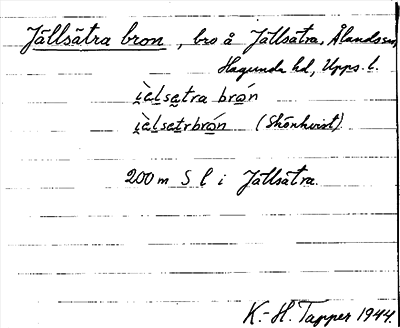 Jällsätra bron, bro å Jällsätra, Ålands sn,
Hagunda hd, Upps. l.
i̯èlsetra brón
i̯èlsetrbrón (Skönhvist).
200 m S l i Jällsätra.
K.-H. Tapper 1944.